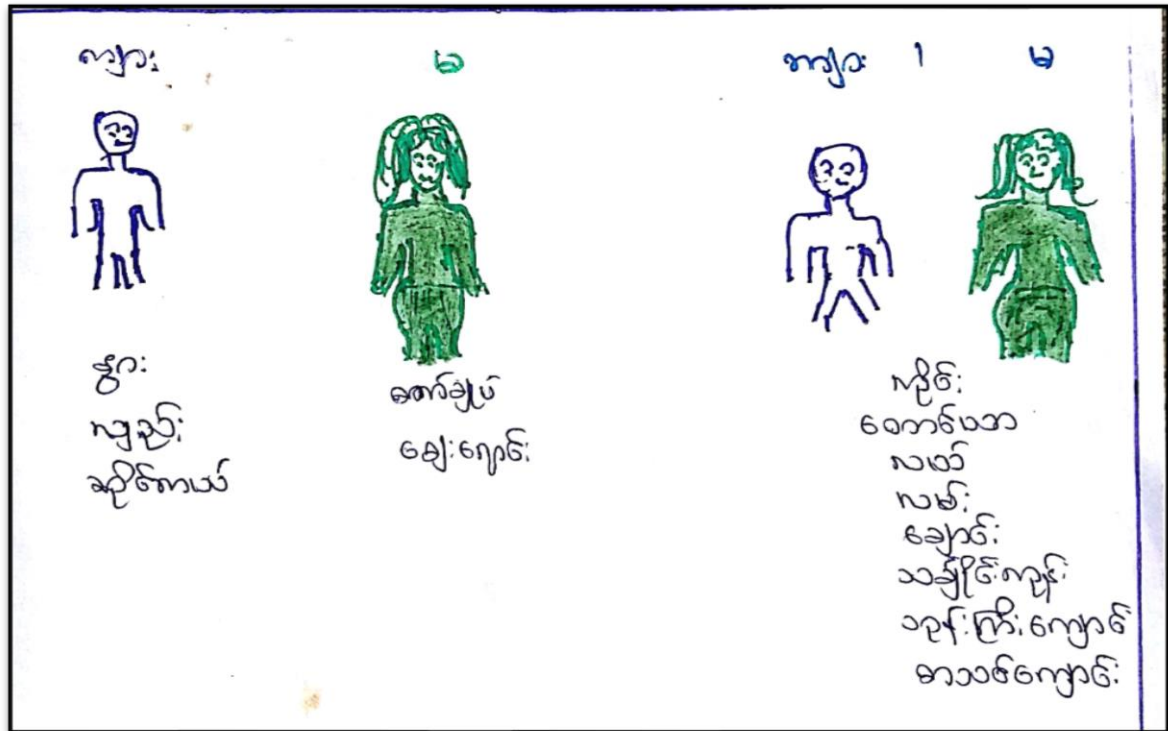 ကျား
မ
ကျား ၊ မ
နွား
လှည်း
ဆိုင်ကယ်
စက်ချုပ်
ဈေးရောင်း
ကိုင်း
လယ်
လမ်း
ချောင်း
သချိုင်းကုန်း
ဘုန်းကြီးကျောင်
စာသင်ကျောင်း